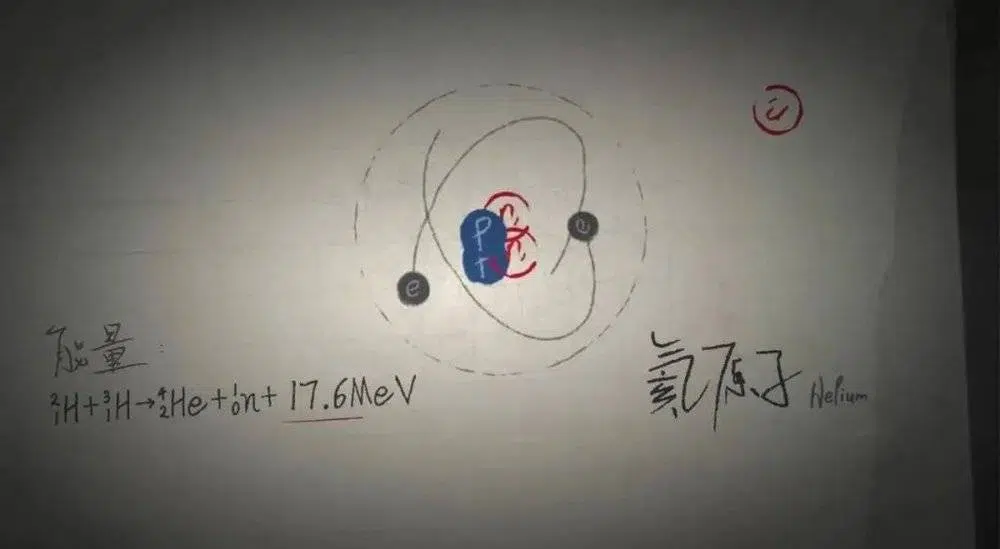 P
e
e
能量:
²₁H+³₁H→⁴₂He+¹₀n+17.6MeV
氦原子 Helium